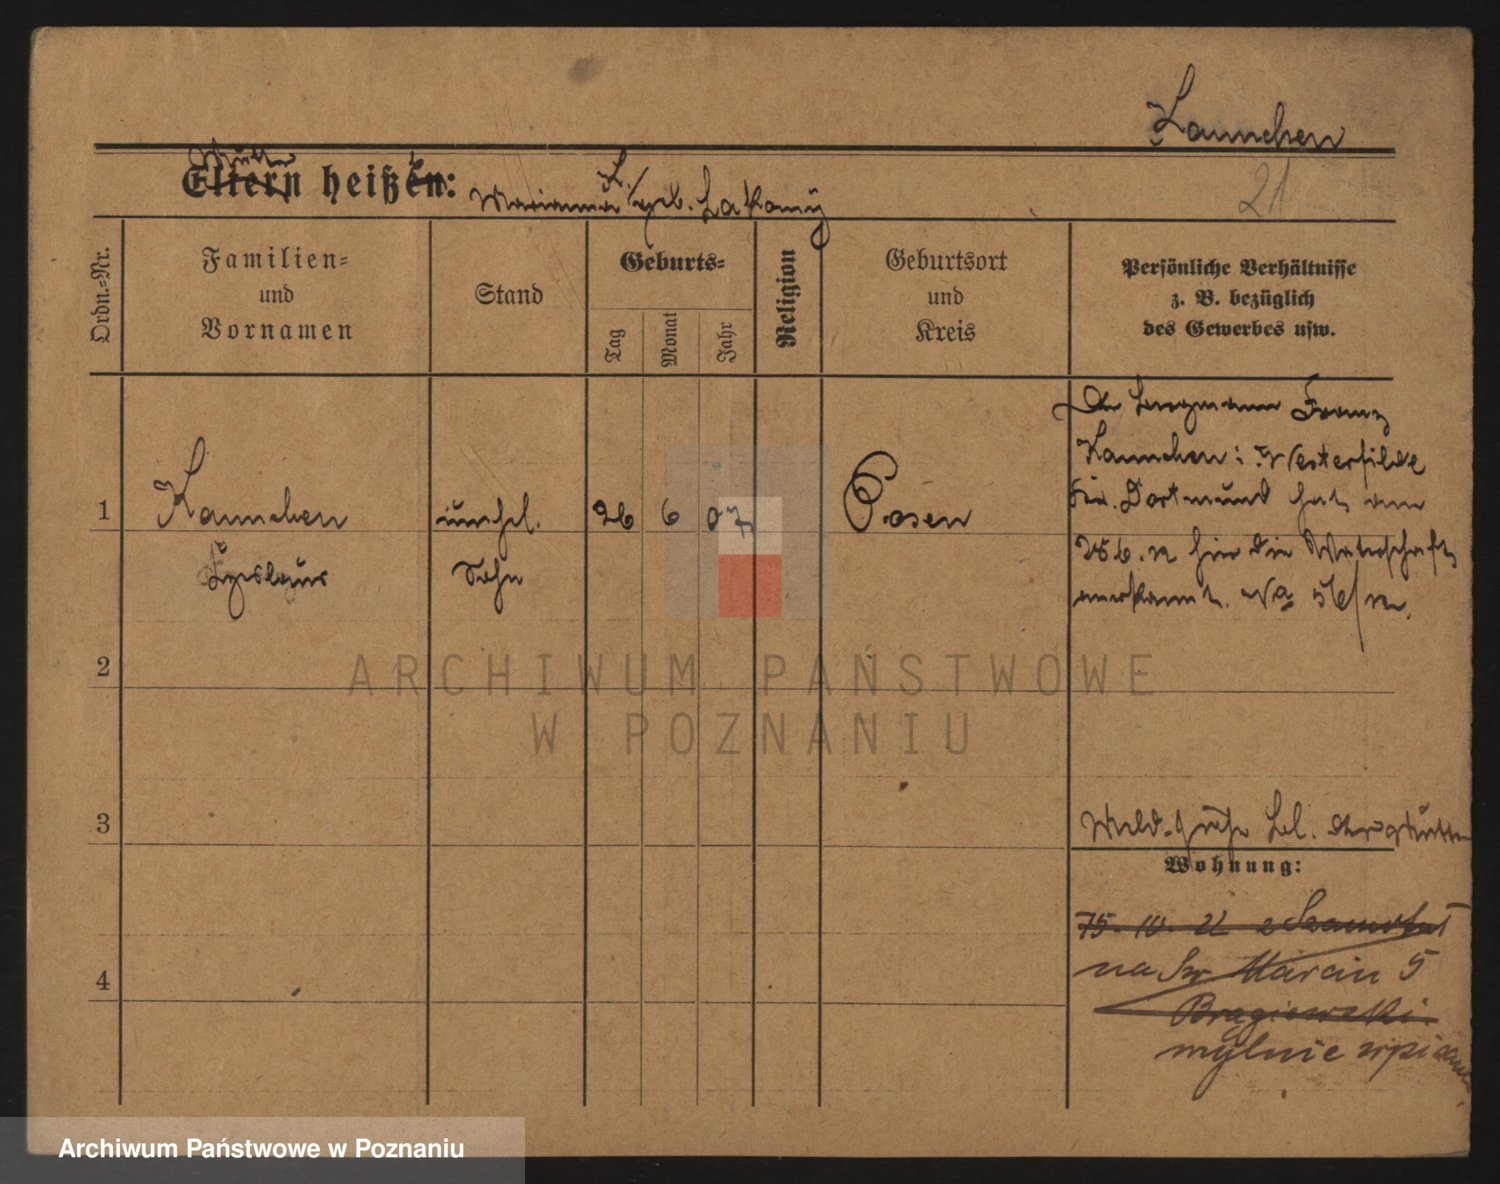 Kannchen
21
Mutter
Eltern heißen:
Marianna K./geb. Lakomy
Ordn.-Nr.
Familien-
und
Vornamen
Stand
Geburts-
Tag
Monat
Jahr
Religion
Geburtsort
und
Kreis
Persönliche Verhältnisse
z. B. bezüglich
des Gewerbes usw.
1
Kannchen
unehl.
26
6
07
Posen
Sohn
Der Bergmann Franz
Kannchen: Westerfilde
Dortmund hat am
hier die Vaterschaft
anerkannt.
2
3
4
Wohnung:
75. 10. 21 z Szamotuł
na Św Marcin 5
mylnie wpisano
ARCHIWUM PAŃSTWOWE
W POZNANIU
Archiwum Państwowe w Poznaniu